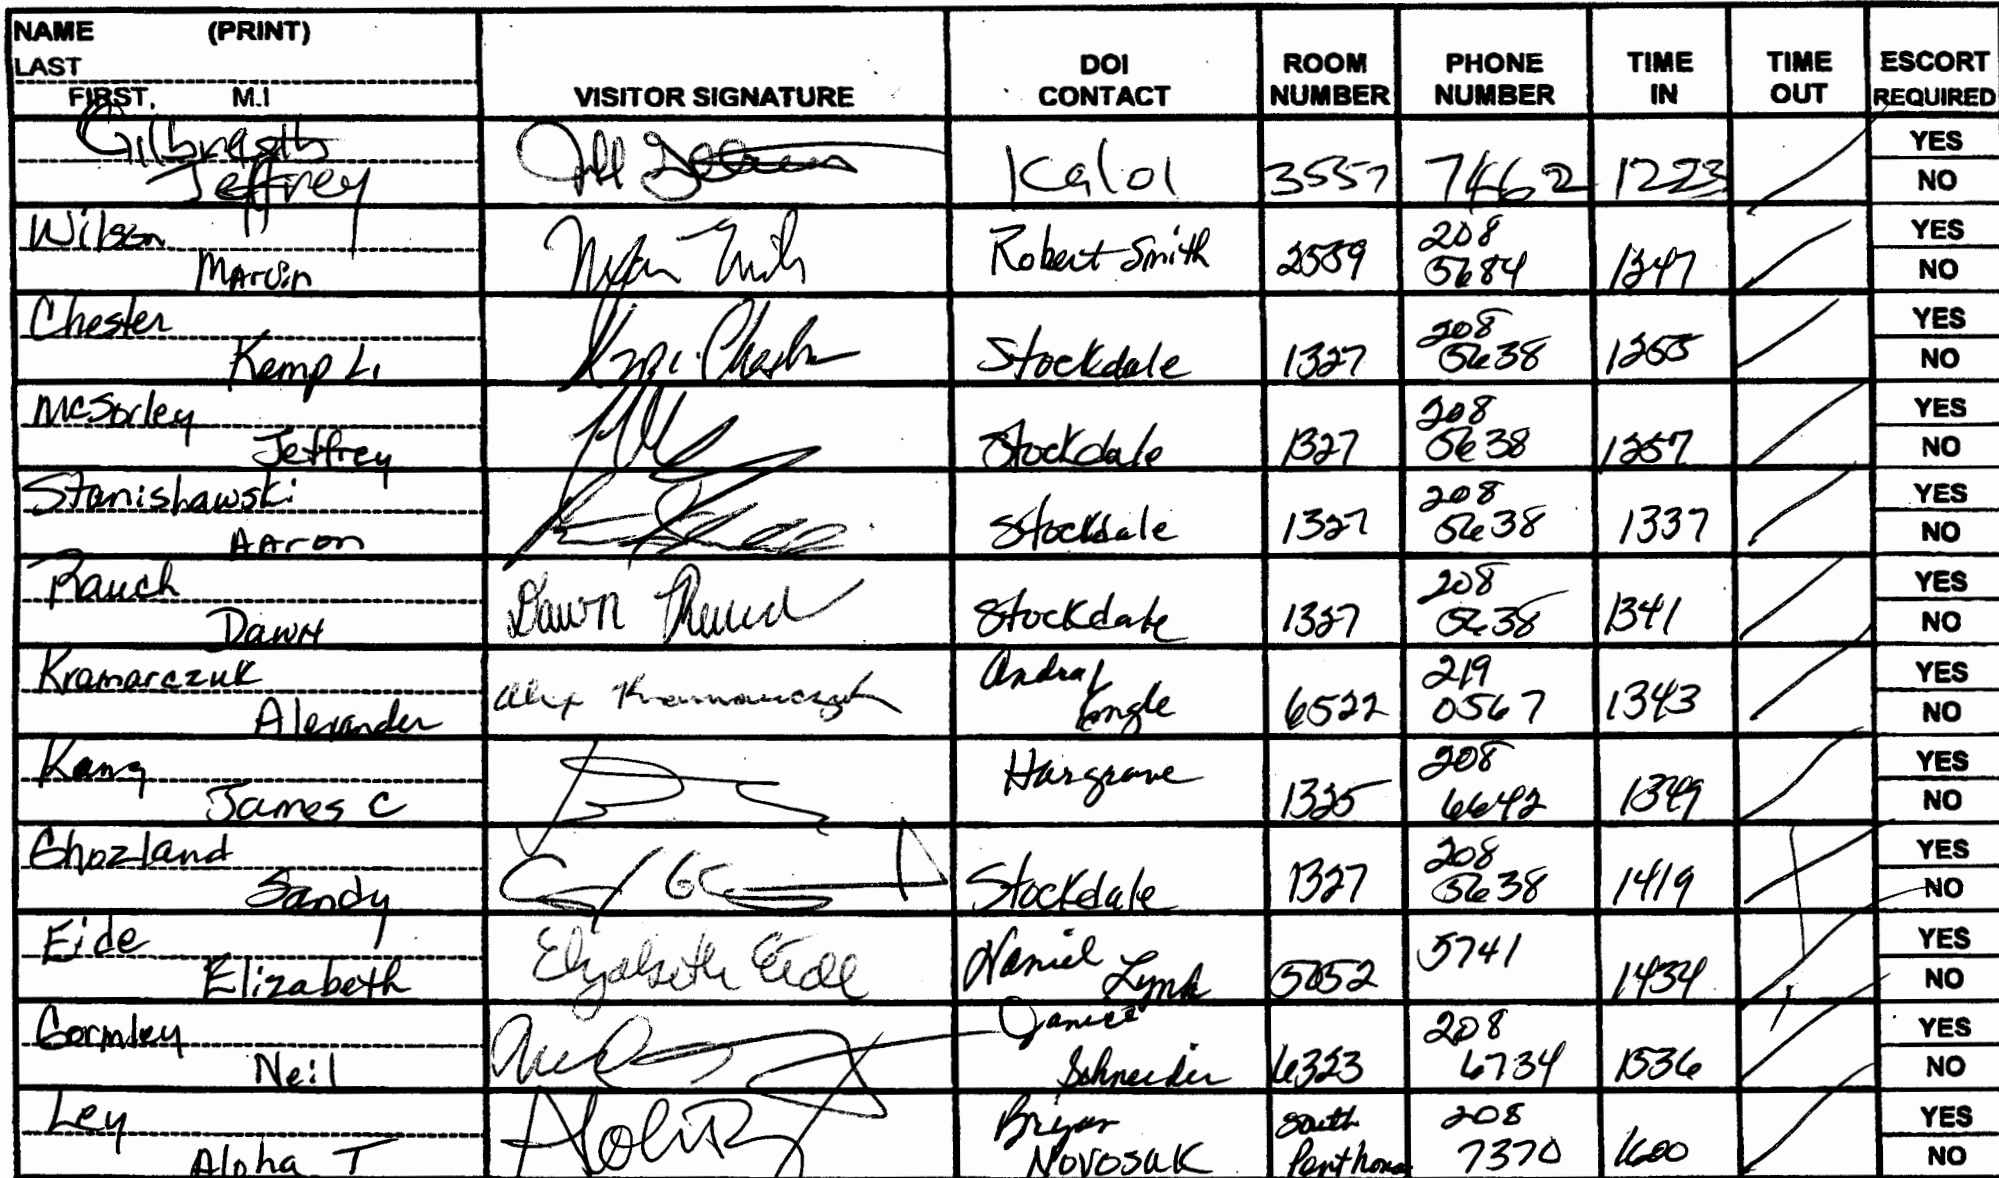 NAME (PRINT)
LAST
FIRST, M.I
VISITOR SIGNATURE
DOI CONTACT
ROOM NUMBER
PHONE NUMBER
TIME IN
TIME OUT
ESCORT REQUIRED
Gilbreath
Jeffrey 3557 7462 1223
YES
NO
Wilson
Marvin Robert Smith 2559 208 5684 1247
YES
NO
Chester
Kemp L. Stockdale 1327 208 5638 1255
YES
NO
McSorley
Jeffrey Stockdale 1327 208 5638 1257
YES
NO
Stanishawski
Aaron Stockdale 1327 208 5638 1337
YES
NO
Rauch
Dawn Dawn Rauch Stockdale 1327 208 5638 1341
YES
NO
Kramarczuk
Alexander Alex Kramarczuk Engle 6522 219 0567 1343
YES
NO
Kang
James C Hargrave 1325 208 6642 1349
YES
NO
Ghozland
Sandy Stockdale 1327 208 5638 1419
YES
NO
Eide
Elizabeth Elizabeth Eide Daniel Lynk 5052 5741 1434
YES
NO
Gormley
Neil Janice Schneider 6323 208 6734 1536
YES
NO
Ley
Aloha T Bryan Novosak South Penthouse 208 7370 1600
YES
NO